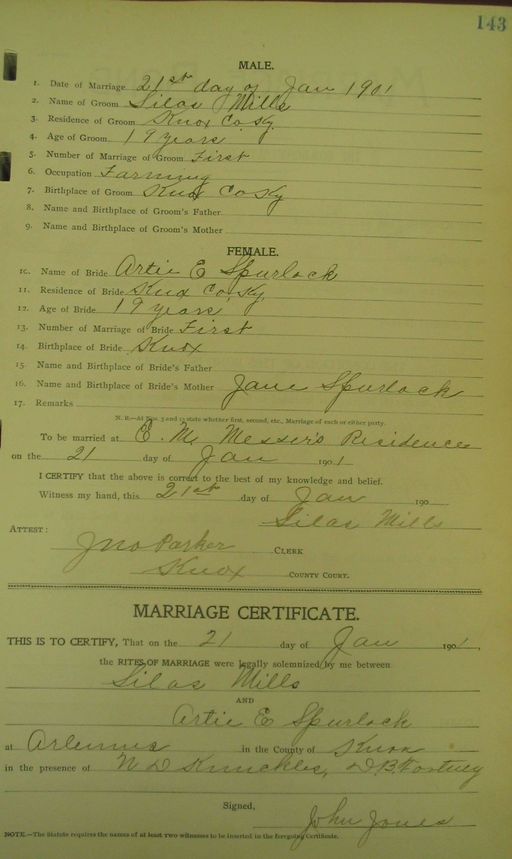 143
MALE.
1. Date of Marriage 21st day of Jan 1901
2. Name of Groom Silas Mills
3. Residence of Groom Knox Co Ky.
4. Age of Groom 19 years
5. Number of Marriage of Groom First
6. Occupation Farming
7. Birthplace of Groom Knox Co Ky
8. Name and Birthplace of Groom's Father
9. Name and Birthplace of Groom's Mother
FEMALE.
10. Name of Bride Artie E Spurlock
11. Residence of Bride Knox Co, Ky.
12. Age of Bride 19 years
13. Number of Marriage of Bride First
14. Birthplace of Bride Knox
15. Name and Birthplace of Bride's Father
16. Name and Birthplace of Bride's Mother Jane Spurlock
17. Remarks
N. B.—At Nos. 5 and 13 state whether first, second, etc., Marriage of each or either party.
To be married at E. M. Messer's Residence
on the 21 day of Jan 1901
I CERTIFY that the above is correct to the best of my knowledge and belief.
Witness my hand, this 21st day of Jan 190
Silas Mills
ATTEST:
Jno Parker CLERK
Knox COUNTY COURT.
MARRIAGE CERTIFICATE.
THIS IS TO CERTIFY, That on the 21 day of Jan 1901,
the RITES OF MARRIAGE were legally solemnized by me between
Silas Mills
AND
Artie E Spurlock
at Artemus in the County of Knox
in the presence of W D Knuckles, D B Fortney
Signed,
John Jones
NOTE.—The Statute requires the names of at least two witnesses to be inserted in the foregoing Certificate.